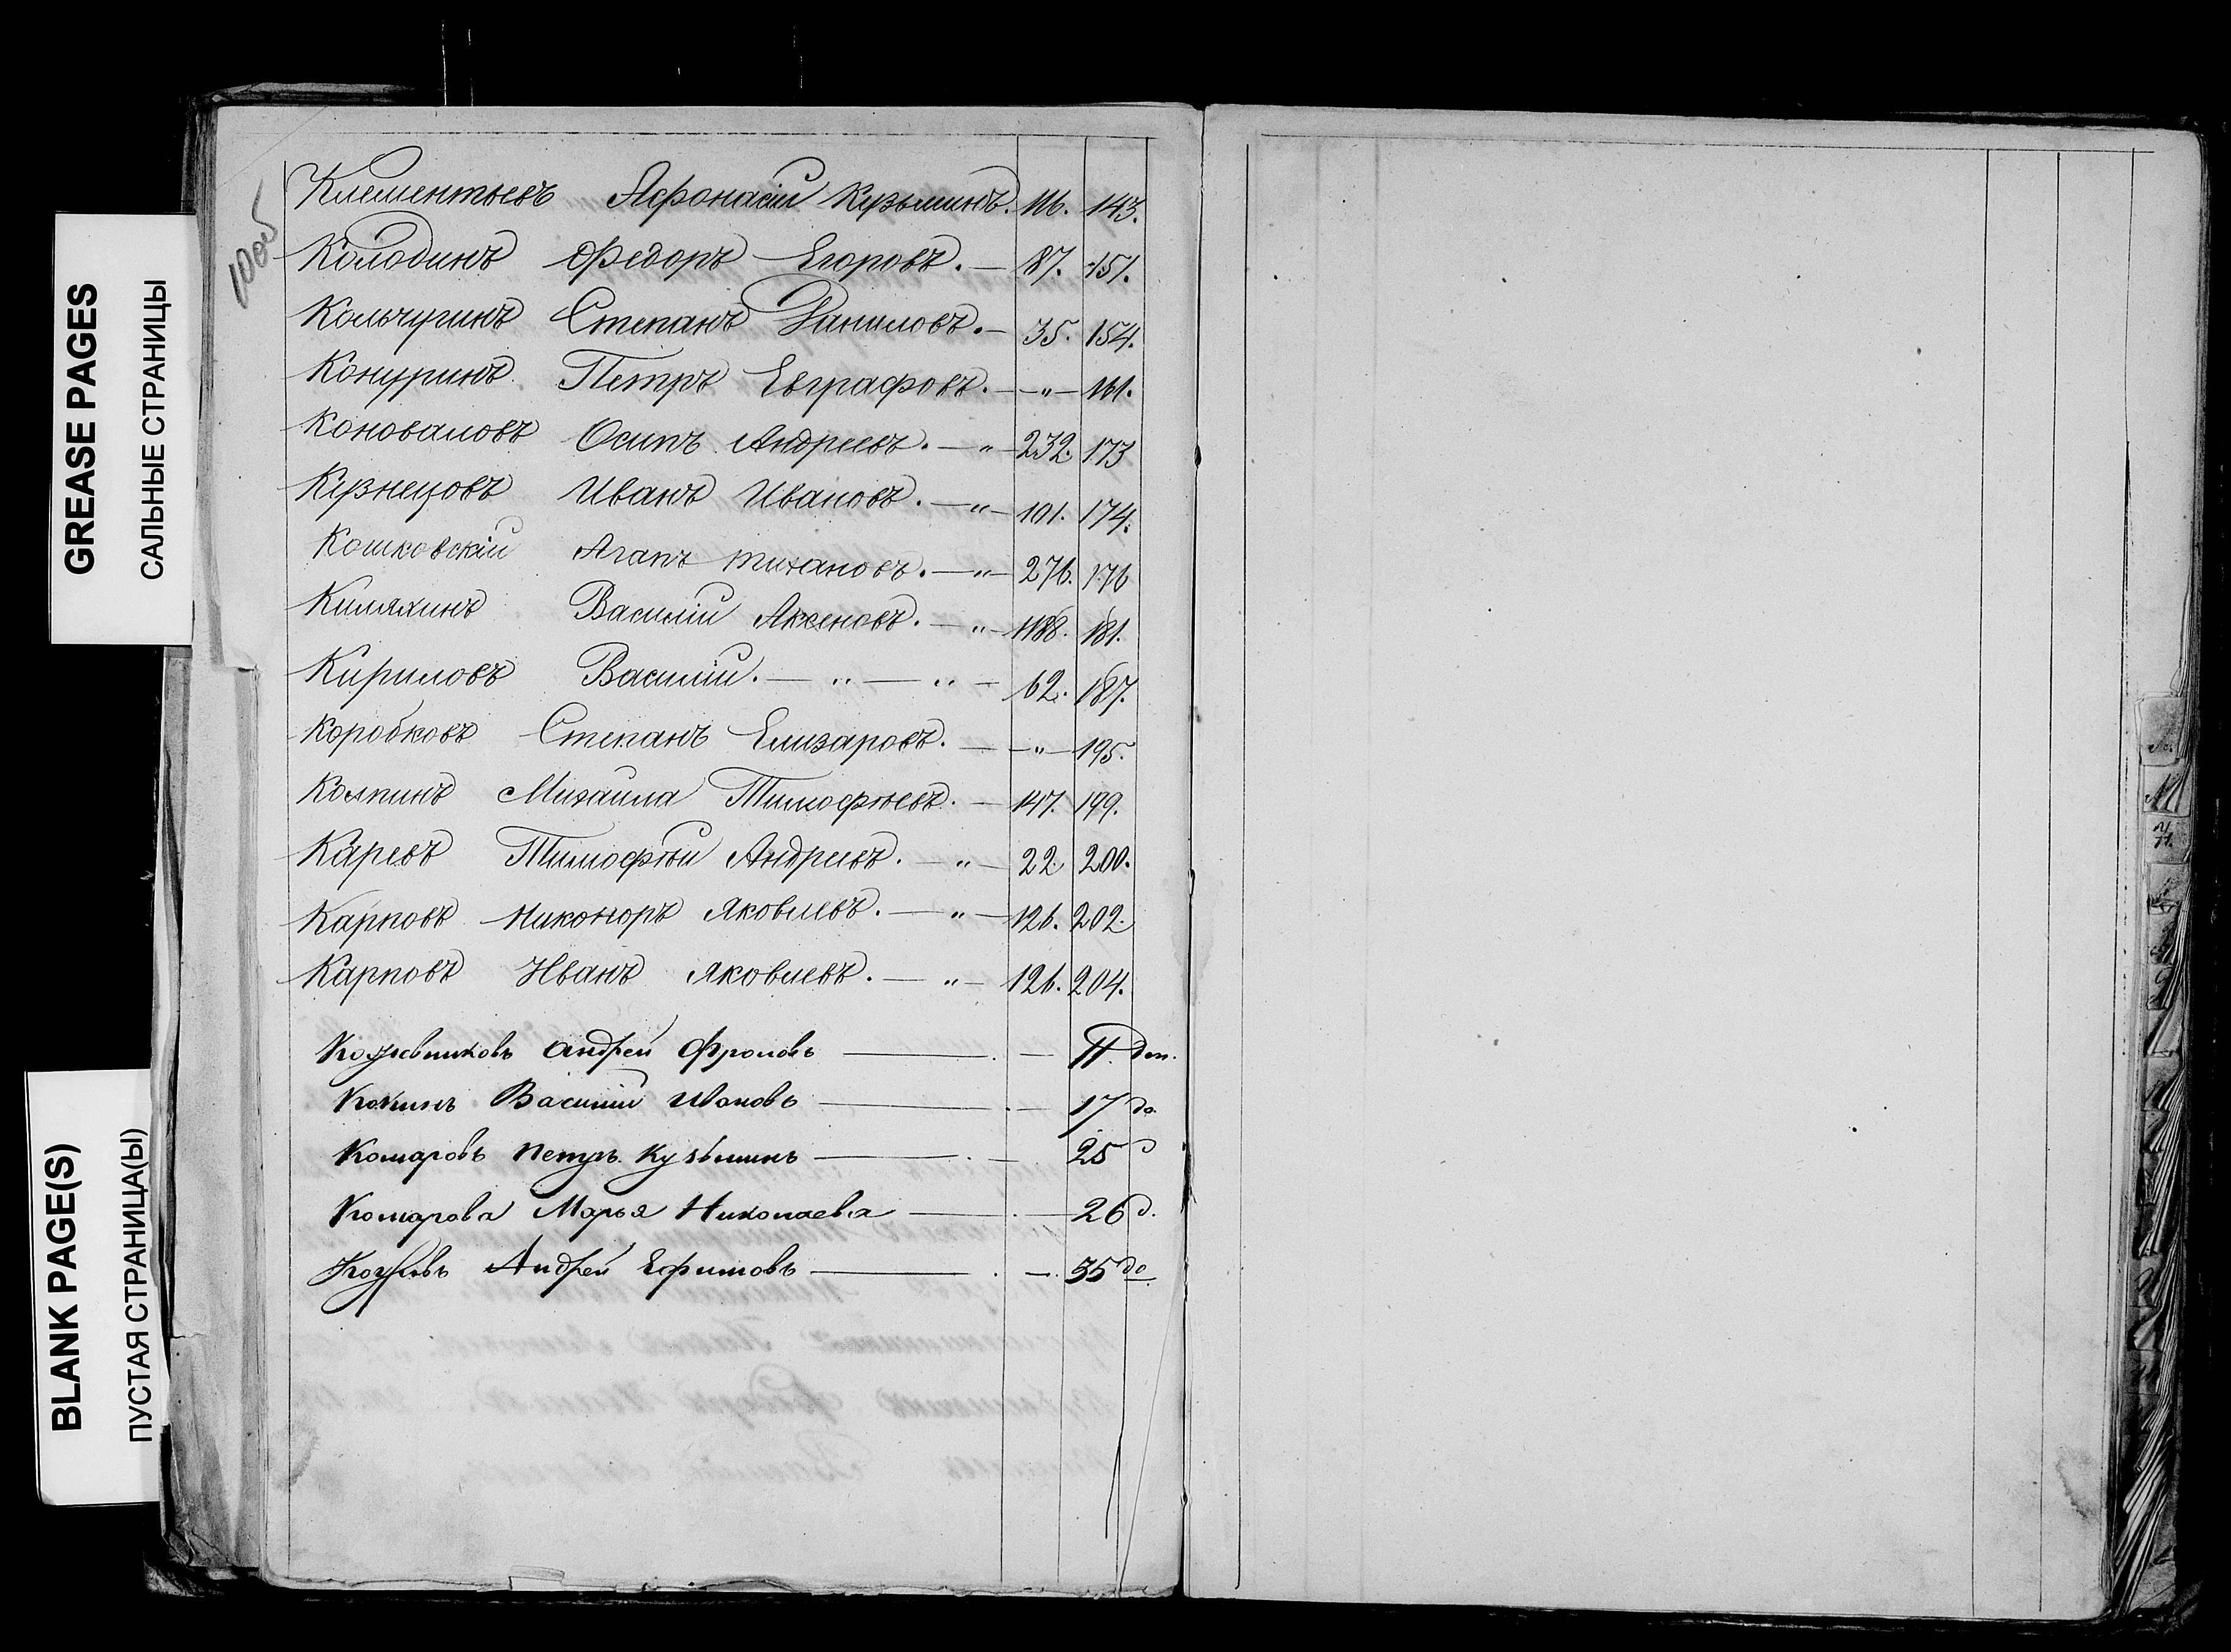 GREASE PAGES
САЛЬНЫЕ СТРАНИЦЫ
BLANK PAGE(S)
ПУСТАЯ СТРАНИЦА(Ы)
Клементьевъ Афонасій Кузьминъ. 116. 143.
Колодинъ Федоръ Егоровъ. — 87. 151.
Кольчугинъ Степанъ Даниловъ. — 35. 154.
Конуринъ Петръ Евграфовъ. — „ — 161.
Коноваловъ Осипъ Андреевъ. — „ — 232. 173
Кузнецовъ Иванъ Ивановъ. — „ — 101. 174.
Кошковскій Агапъ Тихановъ. — „ — 276. 176
Киляхинъ Василій Аксеновъ. — „ — 1188. 181.
Кириловъ Василій. — „ — „ — 62. 187.
Коробковъ Степанъ Елизаровъ. — „ — 195.
Колпинъ Михаила Тимофѣевъ. — 147. 199.
Каревъ Тимофѣй Андреевъ. — „ — 22. 200.
Карповъ Никоноръ Яковлевъ. — „ — 126. 202.
Карповъ Иванъ Яковлевъ. — „ — 126. 204.
Кожевниковъ Андрей Фроловъ — . — 11. доп.
Кокинъ Василій Ивановъ — . — 17 до.
Комаровъ Петръ Кузьминъ — . — 25 д
Комарова Марья Николаева — . — 26 д.
Андрей Ефимовъ — . — 35 до.